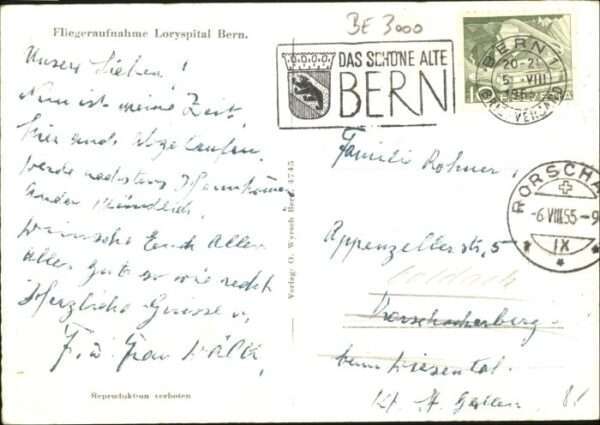 BE 3000
Fliegeraufnahme Loryspital Bern.
Unsere Lieben!
Nun ist meine Zeit
hier auch abgelaufen,
werde nächstens
mündlich.
wünsche Euch Allen
alles gute so wie recht
Herzliche Grüsse v.
F. u. Frau
Reproduktion verboten
Verlag: O. Wyrsch Bern 4745
DAS SCHÖNE ALTE
BERN
BERN 1
20-21
5. VIII
BRIEFVERSAND
Familie Rohner,
Appenzellerstr. 5
Goldach
Rorschacherberg
beim Wiesental.
Kt. St. Gallen
RORSCHA
-6.VIII.55-9
IX